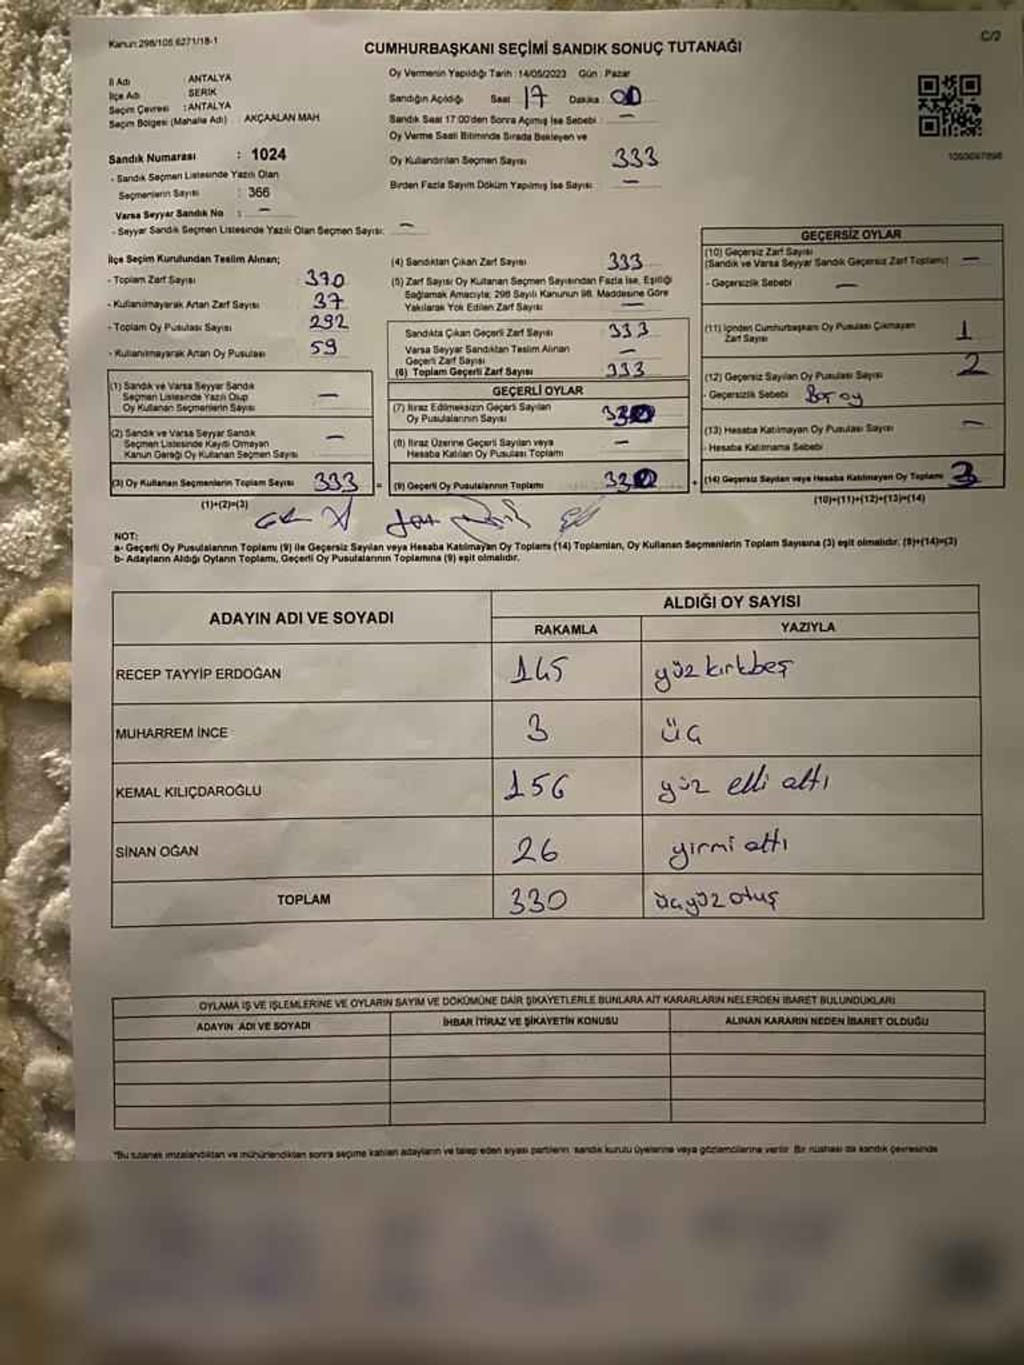 Kanun:298/105 6271/18-1
C/2
CUMHURBAŞKANI SEÇİMİ SANDIK SONUÇ TUTANAĞI
İl Adı : ANTALYA
İlçe Adı : SERİK
Seçim Çevresi : ANTALYA
Seçim Bölgesi (Mahalle Adı) : AKÇAALAN MAH.
Sandık Numarası : 1024
- Sandık Seçmen Listesinde Yazılı Olan
Seçmenlerin Sayısı : 366
Varsa Seyyar Sandık No : —
- Seyyar Sandık Seçmen Listesinde Yazılı Olan Seçmen Sayısı: —
Oy Vermenin Yapıldığı Tarih : 14/05/2023 Gün : Pazar
Sandığın Açıldığı Saat 17 Dakika : 00
Sandık Saat 17:00'den Sonra Açımış İse Sebebi : —
Oy Verme Saati Bitiminde Sırada Bekleyen ve
Oy Kullandırılan Seçmen Sayısı 333
Birden Fazla Sayım Döküm Yapılmış İse Sayısı: —
İlçe Seçim Kurulundan Teslim Alınan;
- Toplam Zarf Sayısı 370
- Kullanılmayarak Artan Zarf Sayısı 37
- Toplam Oy Pusulası Sayısı 292
- Kullanılmayarak Artan Oy Pusulası 59
(1) Sandık ve Varsa Seyyar Sandık
Seçmen Listesinde Yazılı Olup
Oy Kullanan Seçmenlerin Sayısı —
(2) Sandık ve Varsa Seyyar Sandık
Seçmen Listesinde Kaydı Olmayan
Kanun Gereği Oy Kullanan Seçmen Sayısı —
(3) Oy Kullanan Seçmenlerin Toplam Sayısı 333 =
(1)+(2)=(3)
(4) Sandıktan Çıkan Zarf Sayısı 333
(5) Zarf Sayısı Oy Kullanan Seçmen Sayısından Fazla İse, Eşitliği
Sağlamak Amacıyla; 298 Sayılı Kanunun 98. Maddesine Göre
Yakılarak Yok Edilen Zarf Sayısı —
Sandıkta Çıkan Geçerli Zarf Sayısı 333
Varsa Seyyar Sandıktan Teslim Alınan
Geçerli Zarf Sayısı —
(6) Toplam Geçerli Zarf Sayısı 333
GEÇERLİ OYLAR
(7) İtiraz Edilmeksizin Geçerli Sayılan
Oy Pusulalarının Sayısı 330
(8) İtiraz Üzerine Geçerli Sayılan veya
Hesaba Katılan Oy Pusulası Toplamı —
(9) Geçerli Oy Pusulalarının Toplamı 330 +
GEÇERSİZ OYLAR
(10) Geçersiz Zarf Sayısı
(Sandık ve Varsa Seyyar Sandık Geçersiz Zarf Toplamı) —
- Geçersizlik Sebebi —
(11) İçinden Cumhurbaşkanı Oy Pusulası Çıkmayan
Zarf Sayısı 1
(12) Geçersiz Sayılan Oy Pusulası Sayısı 2
- Geçersizlik Sebebi Boş oy
(13) Hesaba Katılmayan Oy Pusulası Sayısı —
- Hesaba Katılmama Sebebi
(14) Geçersiz Sayılan veya Hesaba Katılmayan Oy Toplamı 3
(10)+(11)+(12)+(13)=(14)
NOT:
a- Geçerli Oy Pusulalarının Toplamı (9) ile Geçersiz Sayılan veya Hesaba Katılmayan Oy Toplamı (14) Toplamları, Oy Kullanan Seçmenlerin Toplam Sayısına (3) eşit olmalıdır. (9)+(14)=(3)
b- Adayların Aldığı Oyların Toplamı, Geçerli Oy Pusulalarının Toplamına (9) eşit olmalıdır.
ADAYIN ADI VE SOYADI ALDIĞI OY SAYISI
RAKAMLA YAZIYLA
RECEP TAYYİP ERDOĞAN 145 yüz kırkbeş
MUHARREM İNCE 3 üç
KEMAL KILIÇDAROĞLU 156 yüz elli altı
SİNAN OĞAN 26 yirmi altı
TOPLAM 330 üçyüz otuş
OYLAMA İŞ VE İŞLEMLERİNE VE OYLARIN SAYIM VE DÖKÜMÜNE DAİR ŞİKAYETLERLE BUNLARA AİT KARARLARIN NELERDEN İBARET BULUNDUKLARI
ADAYIN ADI VE SOYADI İHBAR İTİRAZ VE ŞİKAYETİN KONUSU ALINAN KARARIN NEDEN İBARET OLDUĞU
*Bu tutanak imzalandıktan ve mühürlendikten sonra seçime katılan adayların ve talep eden siyasi partilerin sandık kurulu üyelerine veya gözlemcilerine verilir. Bir nüshası da sandık çevresinde